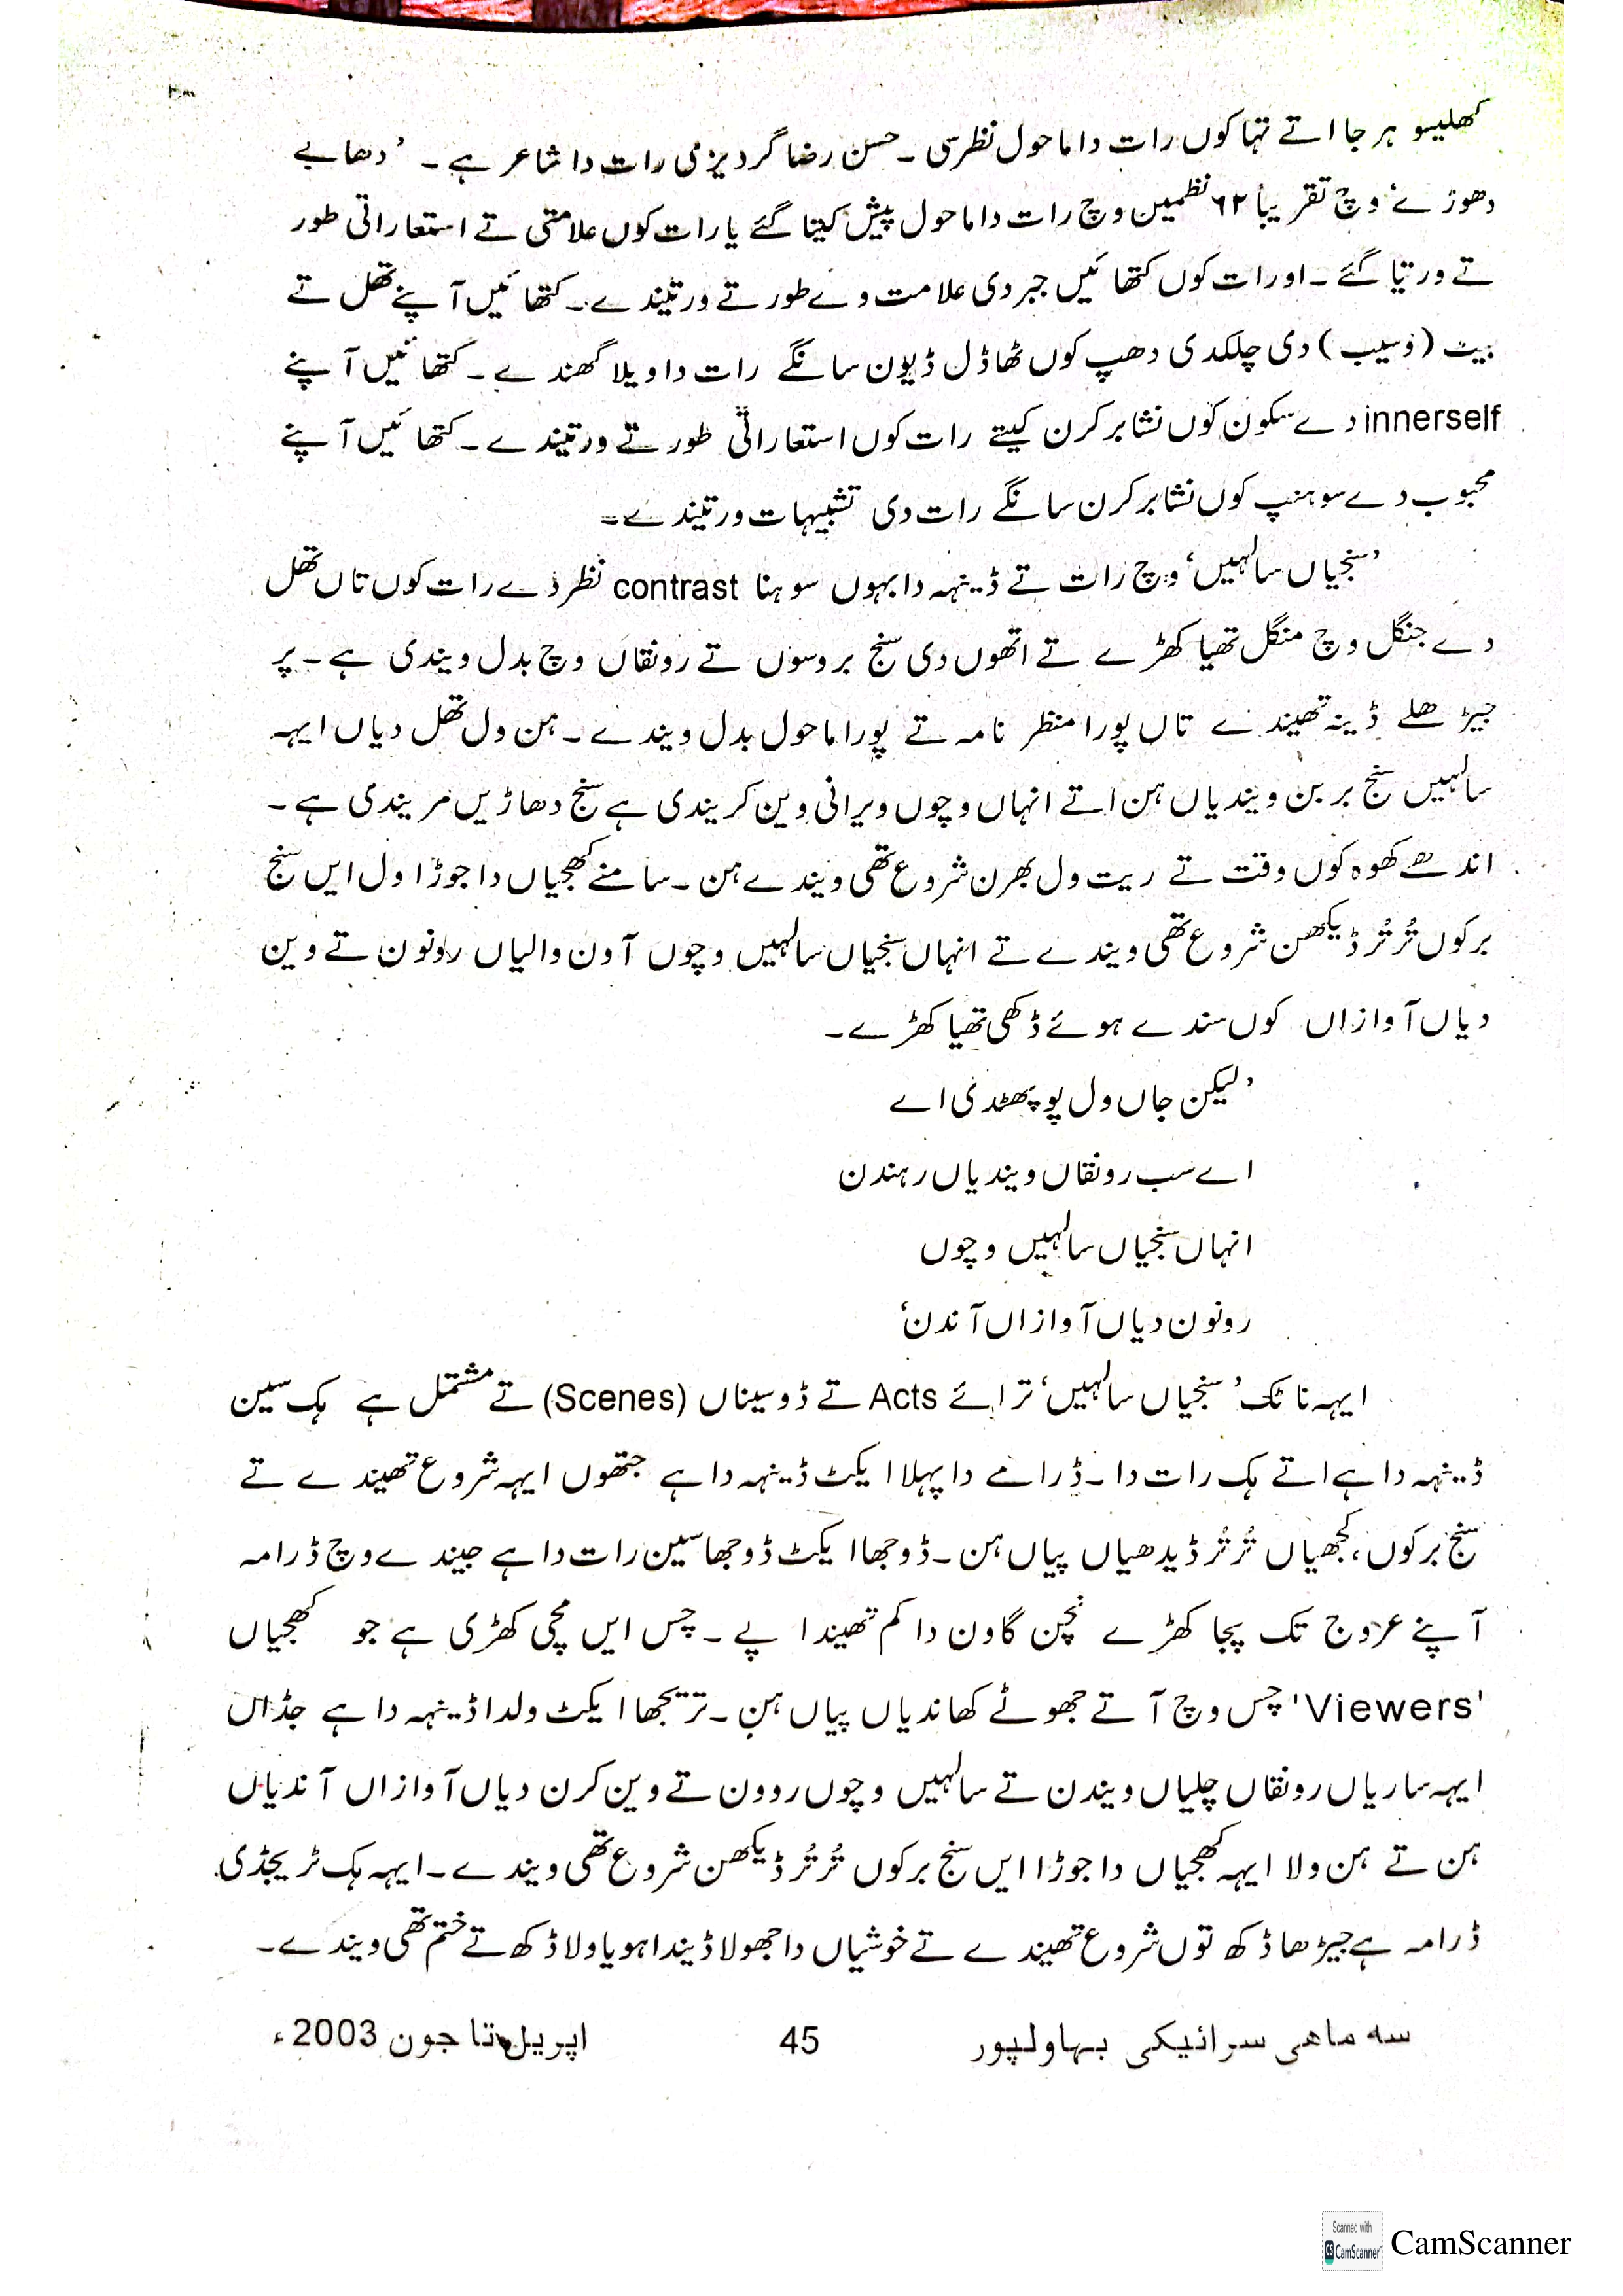 کھلیسو ہر جا اتے تہا کوں رات دا ماحول نظرسی ۔ حسن رضا گردیزی رات دا شاعر ہے ۔ ’دھابے
دھوڑے‘ وچ تقریباً ٦٢ نظمیں وچ رات دا ماحول پیش کیتا گئے یا رات کوں علامتی تے استعاراتی طور
تے ورتیا گئے ۔ او رات کوں کتھائیں جبر دی علامت وے طور تے ورتیندے ۔ کتھائیں آپنے تھل تے
بیٹ (وسیب) دی چلکدی دھپ کوں ٹھاڈل ڈیون سانگے رات دا ویلا گھندے ۔ کتھائیں آپنے
innerself دے سکون کوں نشابر کرن کیتے رات کوں استعاراتی طور تے ورتیندے ۔ کتھائیں آپنے
محبوب دے سوہنپ کوں نشابر کرن سانگے رات دی تشبیہات ورتیندے ۔
’سنجیاں سالہیں‘ وچ رات تے ڈینہہ دا بہوں سوہنا contrast نظر دے رات کوں تاں تھل
دے جنگل وچ منگل تھیا کھڑے تے اتھوں دی سنج بروسوں تے رونقاں وچ بدل ویندی ہے ۔ پر
جیڑھلے ڈینہ تھیندے تاں پورا منظر نامہ تے پورا ماحول بدل ویندے ۔ ہن ول تھل دیاں ایہہ
سالہیں سنج بر بن ویندیاں ہن اتے انہاں وچوں ویرانی وین کریندی ہے سنج دھاڑیں مریندی ہے ۔
اندھے کھوہ کوں وقت تے ریت ول بھرن شروع تھی ویندے ہن ۔ سامنے کھجیاں دا جوڑا ول ایں سنج
بر کوں تُر تُر ڈیکھن شروع تھی ویندے تے انہاں سنجیاں سالہیں وچوں آون والیاں روﻧون تے وین
دیاں آوازاں کوں سندے ہوئے ڈکھی تھیا کھڑے ۔
’لیکن جاں ول پو پھٹدی اے
اے سب رونقاں ویندیاں رہندن
انہاں سنجیاں سالہیں وچوں
رونون دیاں آوازاں آندن‘
ایہہ ناٹک ’سنجیاں سالہیں‘ ترائے Acts تے ڈو سیناں (Scenes) تے مشتمل ہے ہک سین
ڈینہہ دا ہے اتے ہک رات دا ۔ ڈرامے دا پہلا ایکٹ ڈینہہ دا ہے جتھوں ایہہ شروع تھیندے تے
سنج بر کوں، کجھیاں تُر تُر ڈیدھیاں پیاں ہن ۔ ڈوجھا ایکٹ ڈوجھا سین رات دا ہے جیندے وچ ڈرامہ
آپنے عروج تک پجا کھڑے نچن گاون دا کم تھیندا پے ۔ چس ایں مچی کھڑی ہے جو کھجیاں
'Viewers' چس وچ آتے جھوٹے کھاندیاں پیاں ہن ۔ تریجھا ایکٹ ولدا ڈینہہ دا ہے جڈاں
ایہہ ساریاں رونقاں چلیاں ویندن تے سالہیں وچوں روون تے وین کرن دیاں آوازاں آندیاں
ہن تے ہن ولا ایہہ کھجیاں دا جوڑا ایں سنج بر کوں تُر تُر ڈیکھن شروع تھی ویندے ۔ ایہہ ہک ٹریجڈی
ڈرامہ ہے جیڑھا ڈکھ توں شروع تھیندے تے خوشیاں دا جھولا ڈیندا ہویا ولا ڈکھ تے ختم تھی ویندے ۔
سہ ماھی سرائیکی بہاولپور 45 اپریل تا جون 2003ء
Scanned with
CS CamScanner CamScanner